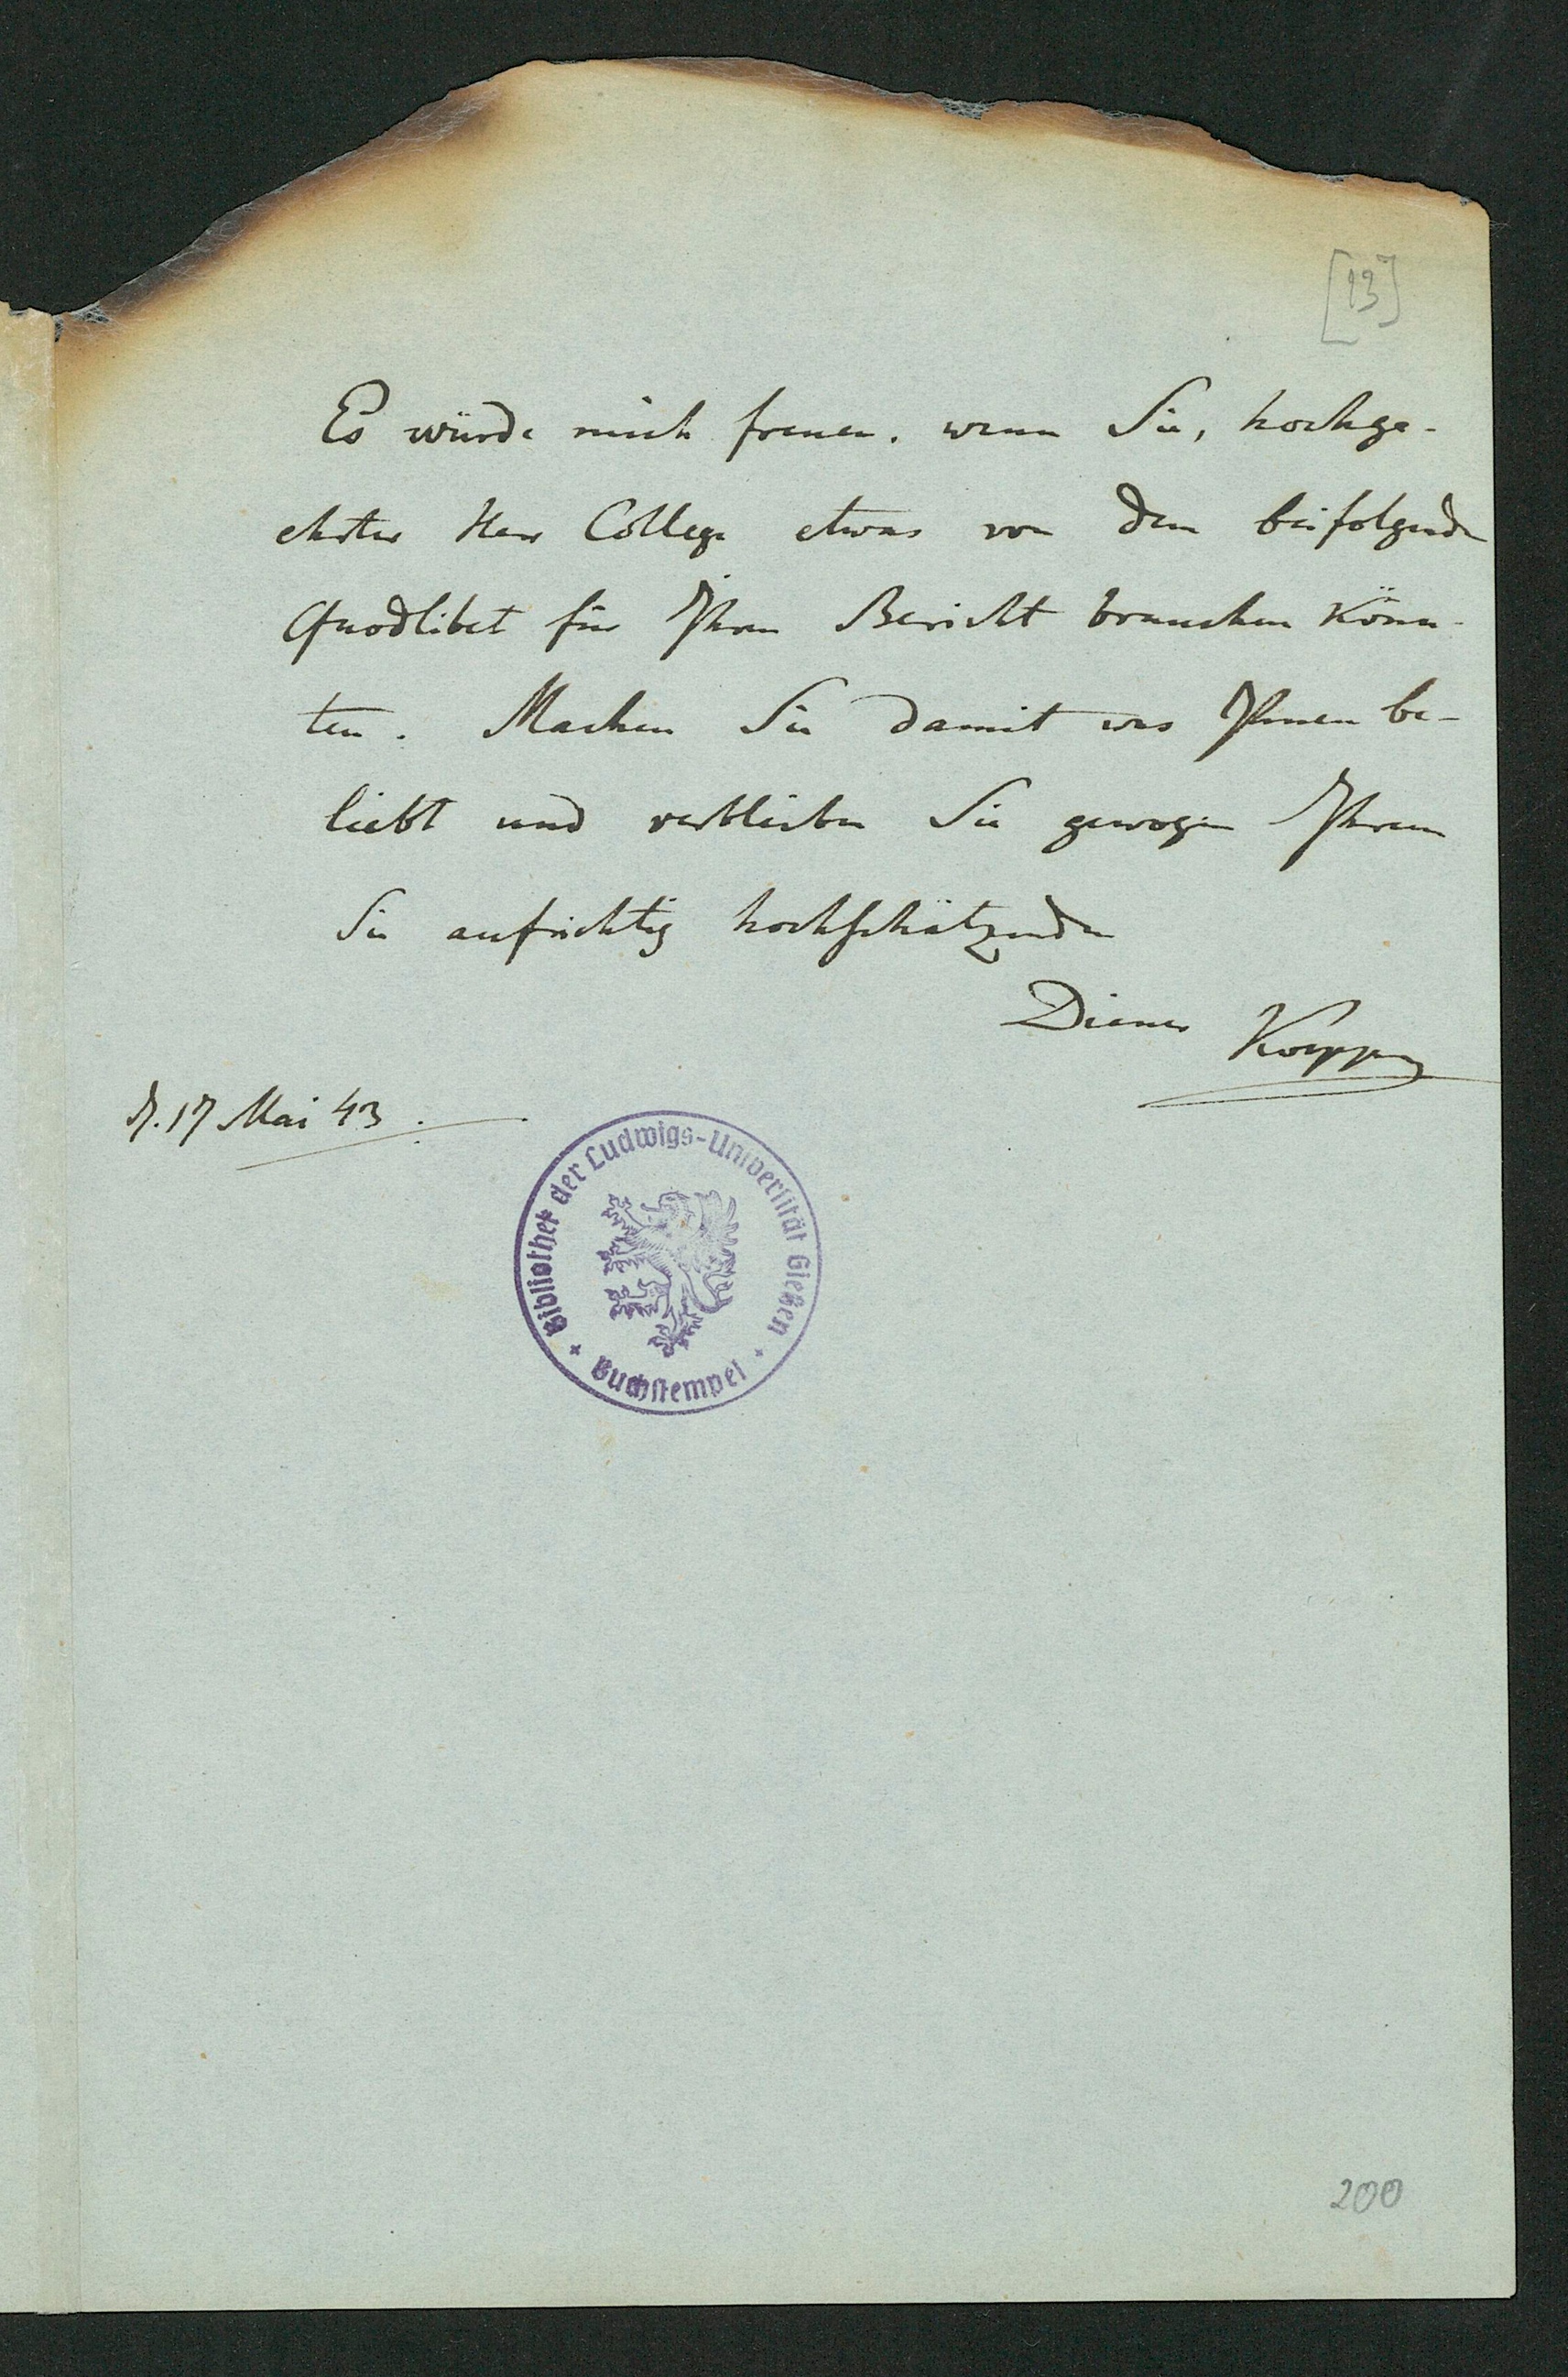 [13]
Es würde mich freuen, wenn Sie, hochge-
ehrter Herr College etwas von dem beifolgenden
Quodlibet für Ihren Bericht brauchen könn-
ten. Machen Sie damit was Ihnen be-
liebt und verbleiben Sie gewogen Ihrem
Sie aufrichtig hochschätzenden
Diener Koeppen
d. 17 Mai 43.
Bibliothek der Ludwigs-Universität Gießen
Buchstempel
200